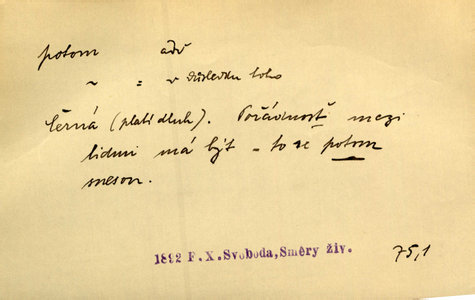 potom adv
~ = v důsledku toho
Černá (platí dluh). Pořádnost mezi
lidmi má být - to se potom
nesou.
1892 F.X.Svoboda, Směry živ. 75,1